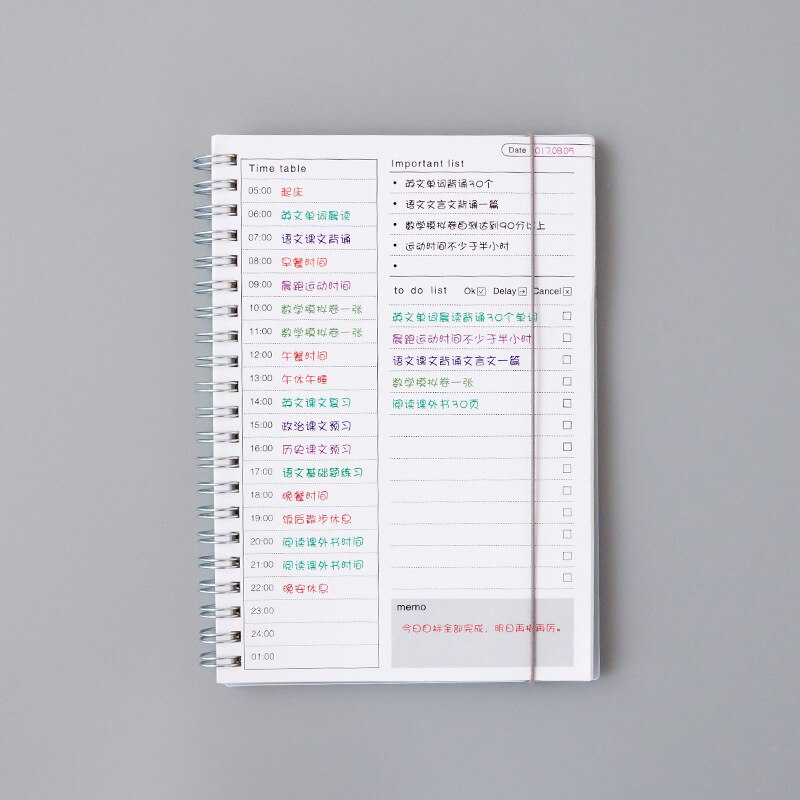 Time table
05:00 起床
06:00 英文单词晨读
07:00 语文课文背诵
08:00 早餐时间
09:00 晨跑运动时间
10:00 数学模拟卷一张
11:00 数学模拟卷一张
12:00 午餐时间
13:00 午休午睡
14:00 英文课文复习
15:00 政治课文预习
16:00 历史课文预习
17:00 语文基础题练习
18:00 晚餐时间
19:00 饭后散步休息
20:00 阅读课外书时间
21:00 阅读课外书时间
22:00 晚安休息
23:00
24:00
01:00
Date 017.08.05
Important list
• 英文单词背诵30个
• 语文文言文背诵一篇
• 数学模拟卷自测达到90分以上
• 运动时间不少于半小时
•
to do list Ok Delay Cancel
英文单词晨读背诵30个单词
晨跑运动时间不少于半小时
语文课文背诵文言文一篇
数学模拟卷一张
阅读课外书30页
memo
今日目标全部完成，明日再接再厉。